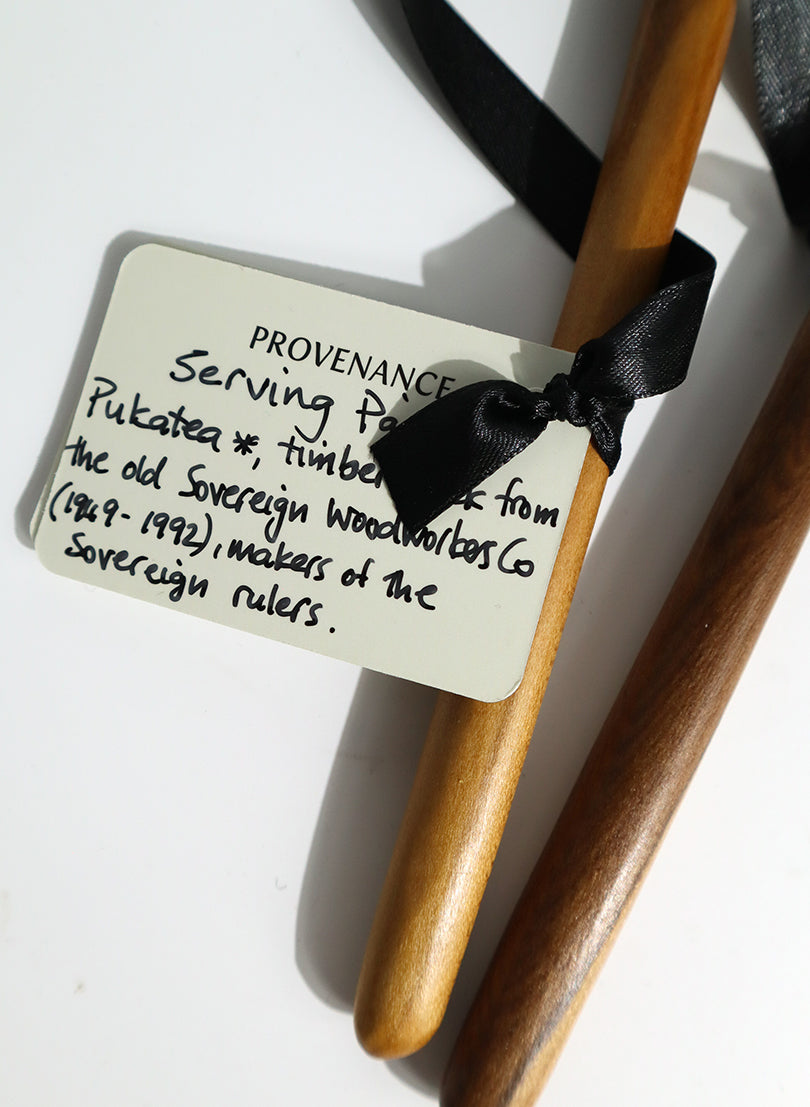 PROVENANCE
Serving
Pukatea *, timber from
the old Sovereign Woodworkers Co
(1949 - 1992), makers of the
Sovereign rulers.